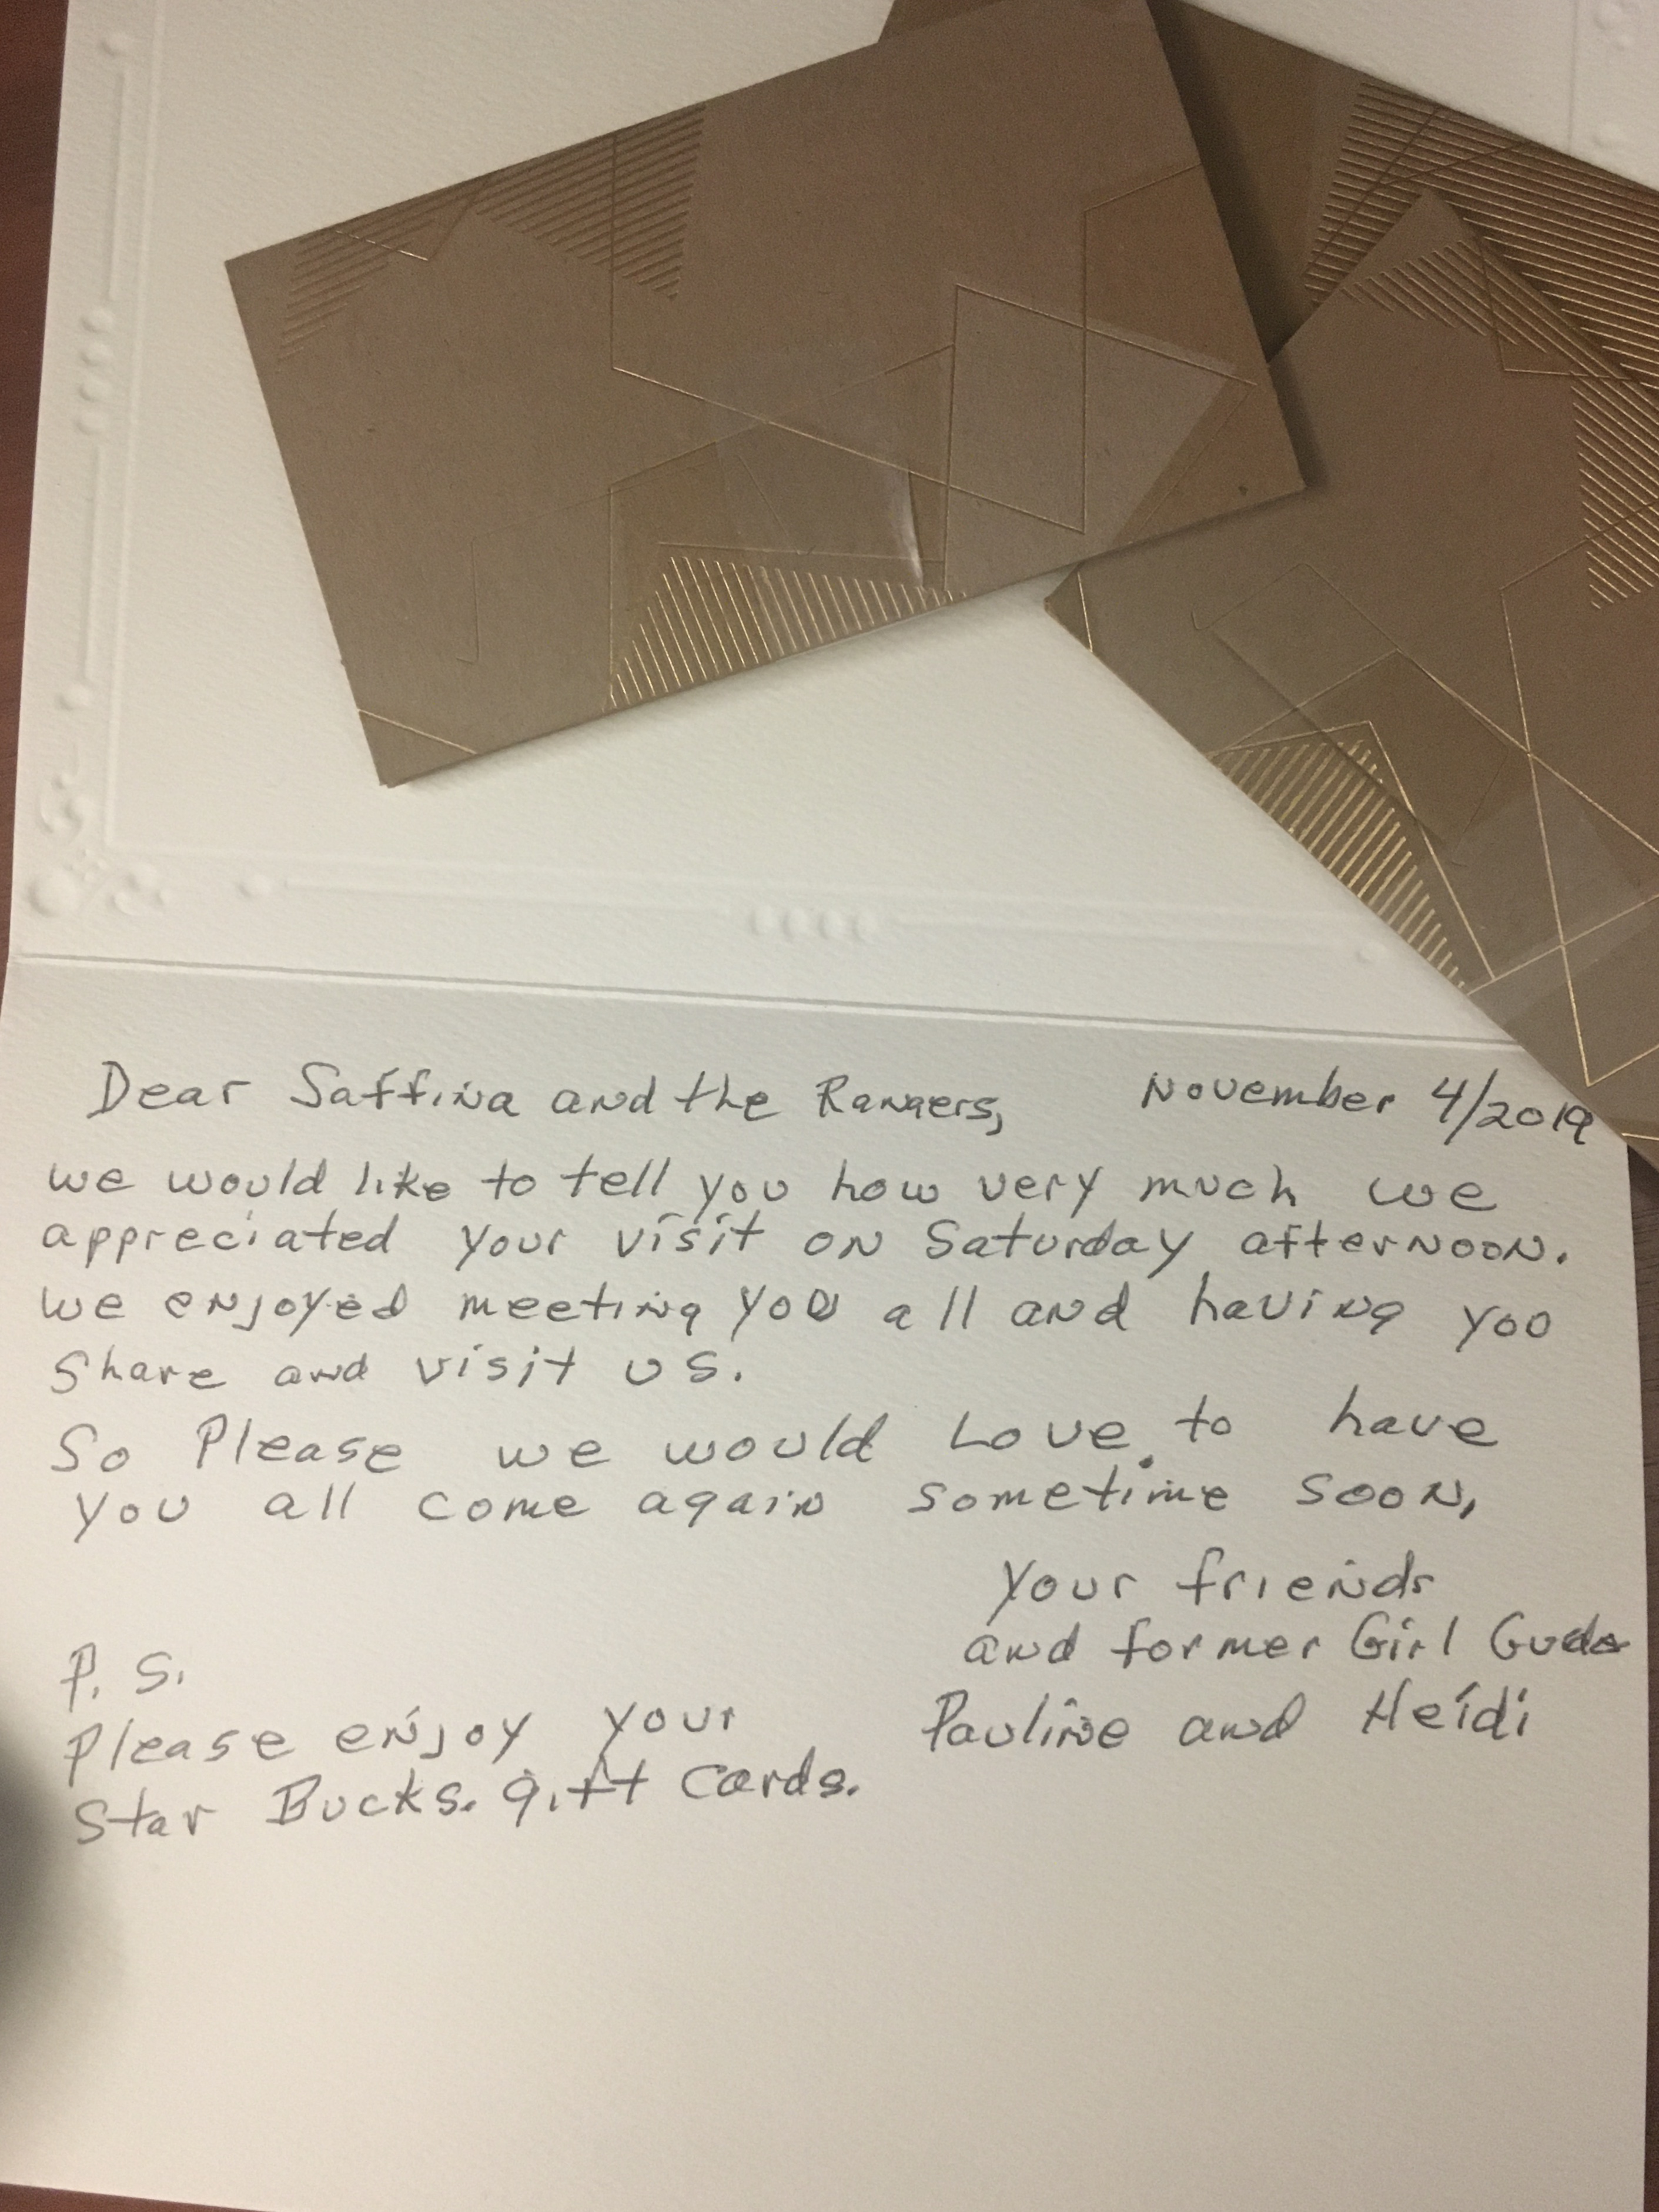 Dear Saffina and the Rangers, November 4/2019
we would like to tell you how very much we
appreciated your visit on Saturday afternoon.
we enjoyed meeting you all and having you
Share and visit us.
So Please we would Love to have
you all come again sometime soon,
your friends
and former Girl Guide
Pauline and Heidi
P. S.
Please enjoy your
Star Bucks. gift cards.